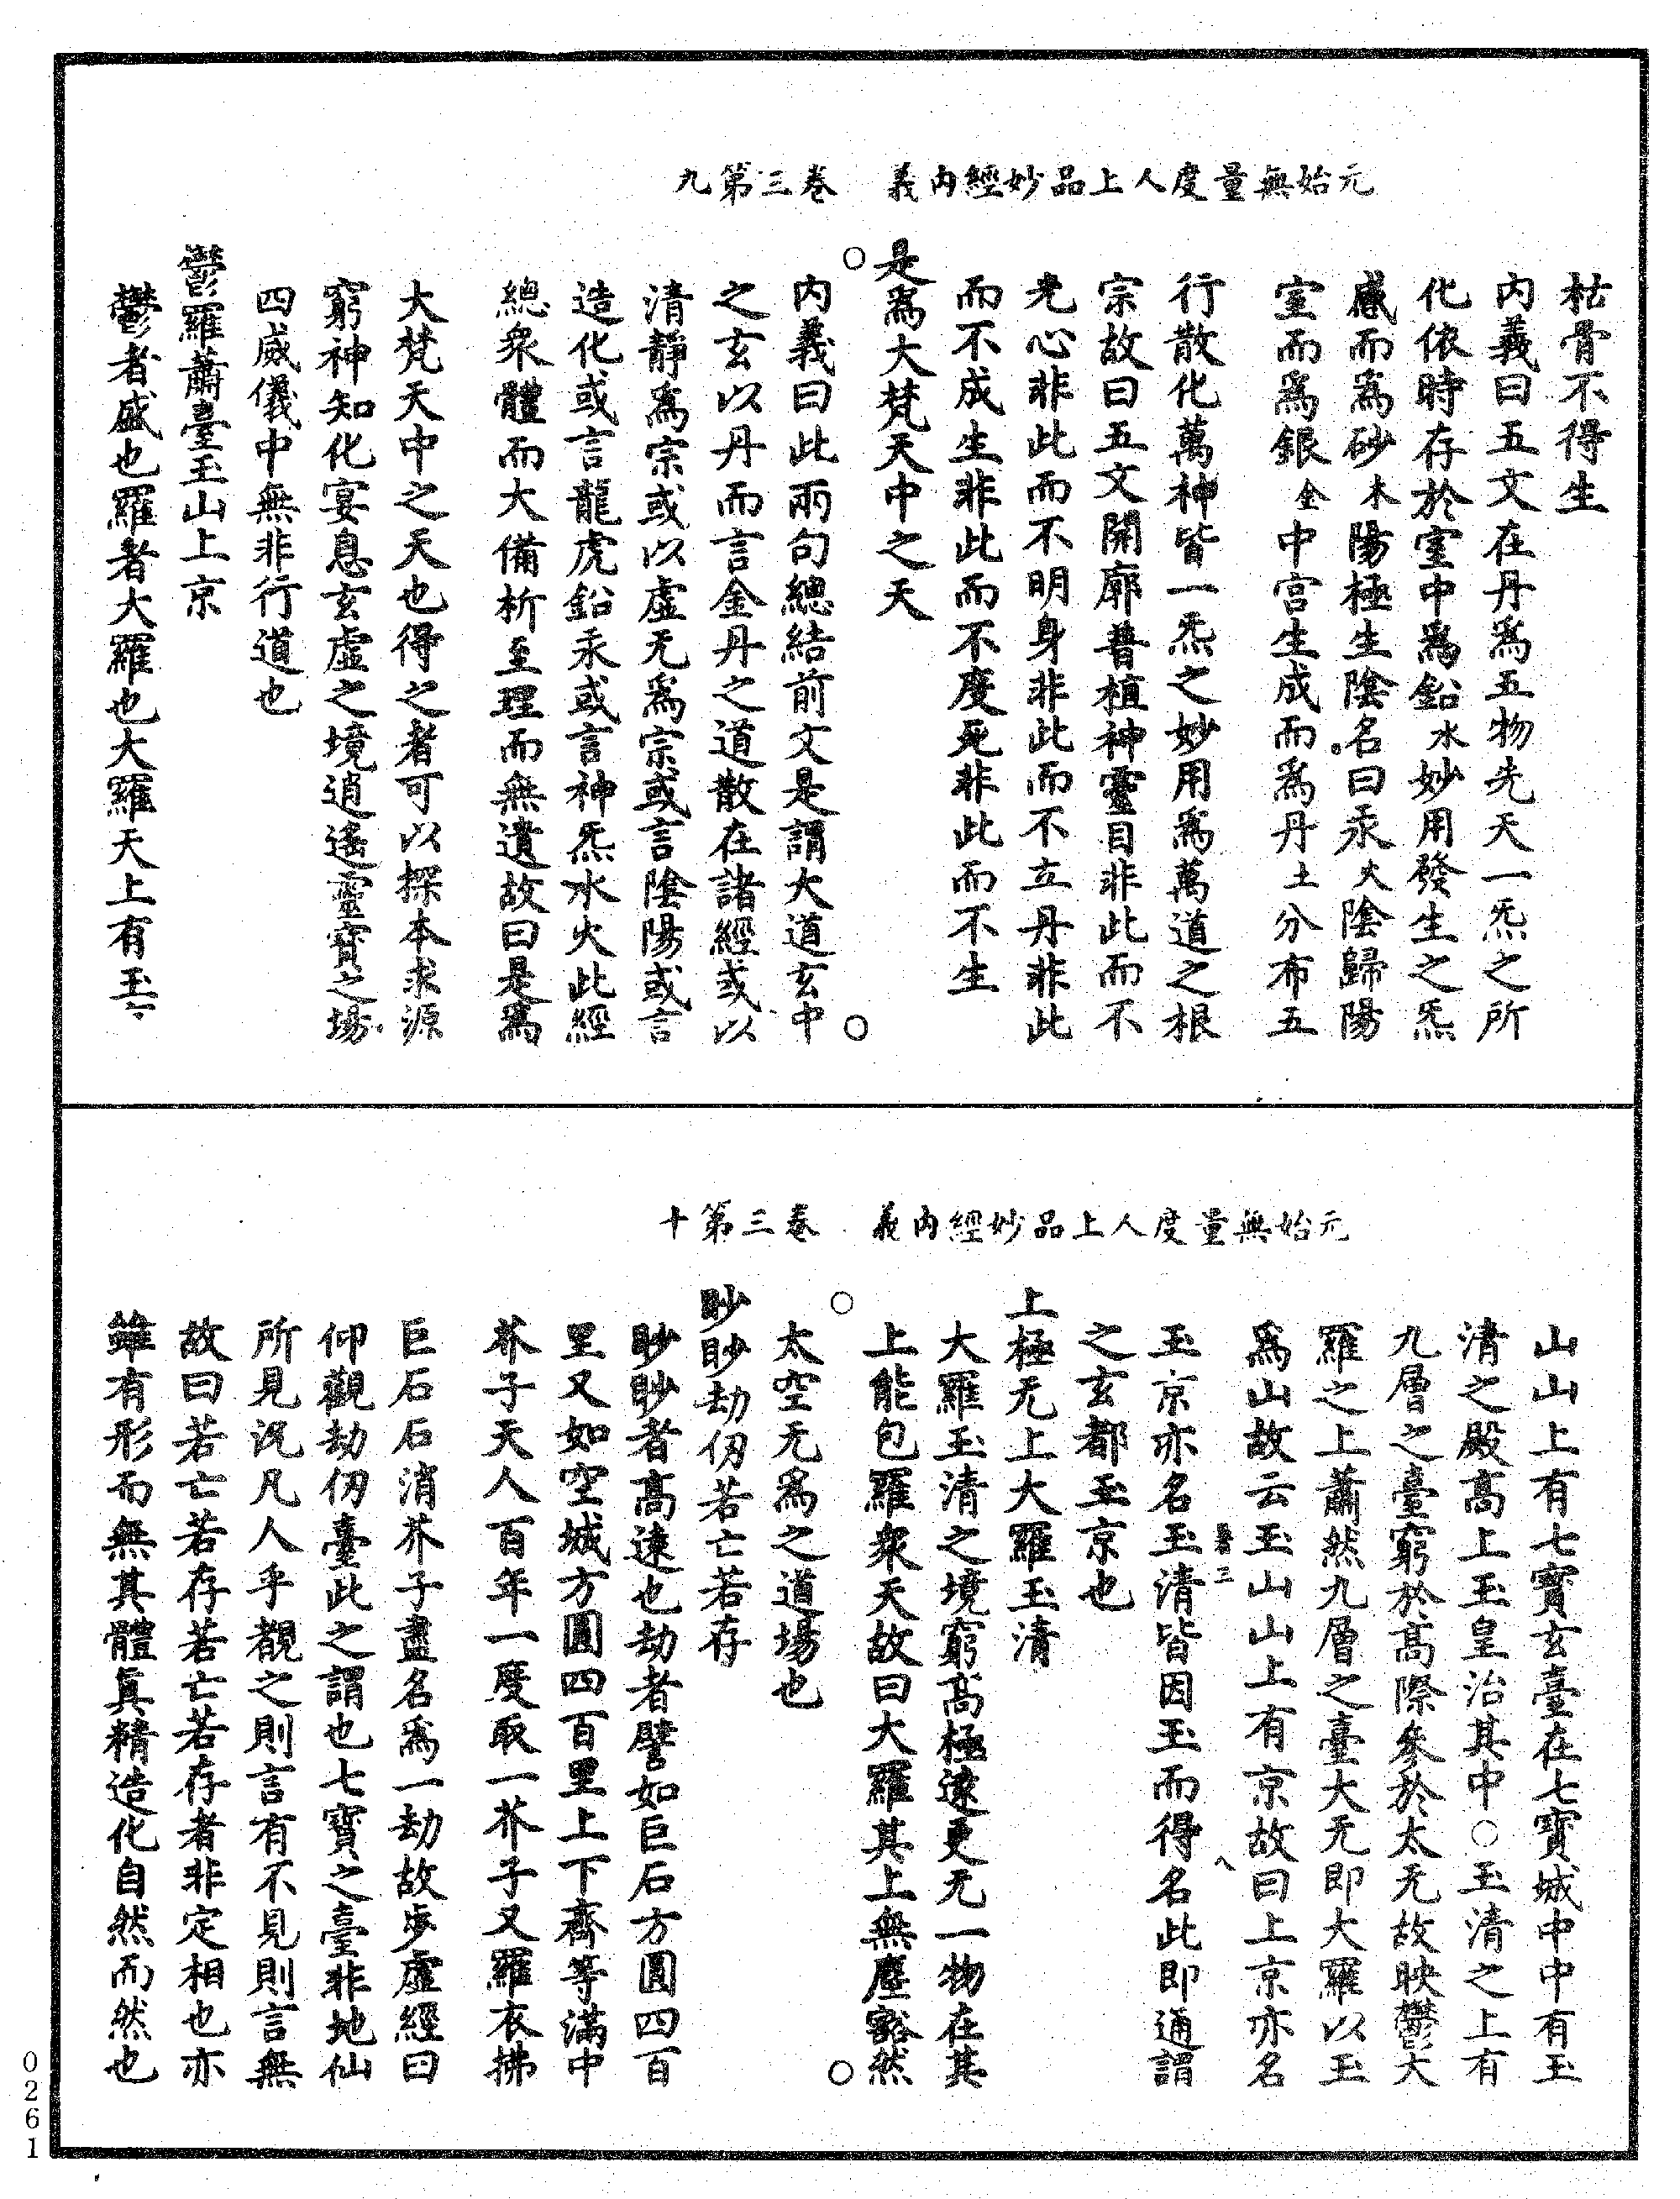 元始無量度人上品妙經內義　卷三第九
枯骨不得生
內義曰五文在丹爲五物先天一炁之所
化依時存於室中爲鉛水妙用發生之炁
感而爲砂木陽極生陰名曰汞火陰歸陽
室而爲銀金中宮生成而爲丹土分布五
行散化萬神皆一炁之妙用爲萬道之根
宗故曰五文開廓普植神靈目非此而不
光心非此而不明身非此而不立丹非此
而不成生非此而不度死非此而不生
是爲大梵天中之天
內義曰此兩句總結前文是謂大道玄中
之玄以丹而言金丹之道散在諸經或以
清靜爲宗或以虛无爲宗或言陰陽或言
造化或言龍虎鉛汞或言神炁水火此經
總衆體而大備析至理而無遺故曰是爲
大梵天中之天也得之者可以探本求源
窮神知化宴息玄虛之境逍遙靈寶之場
四威儀中無非行道也
鬱羅蕭臺玉山上京
鬱者盛也羅者大羅也大羅天上有玉京
元始無量度人上品妙經內義　卷三第十
山山上有七寶玄臺在七寶城中中有玉
清之殿高上玉皇治其中○玉清之上有
九層之臺窮於高際參於太无故映鬱大
羅之上蕭然九層之臺大无即大羅以玉
爲山故云玉山山上有京故曰上京亦名
卷三　八
玉京亦名玉清皆因玉而得名此即通謂
之玄都玉京也
上極无上大羅玉清
大羅玉清之境窮高極遠更无一物在其
上能包羅衆天故曰大羅其上無塵豁然
太空无爲之道場也
眇眇劫仞若亡若存
眇眇者高遠也劫者譬如巨石方圓四百
里又如空城方圓四百里上下齊等滿中
芥子天人百年一度取一芥子又羅衣拂
巨石石消芥子盡名爲一劫故步虛經曰
仰觀劫仞臺此之謂也七寶之臺非地仙
所見況凡人乎覩之則言有不見則言無
故曰若亡若存若亡若存者非定相也亦
雖有形而無其體眞精造化自然而然也
0261